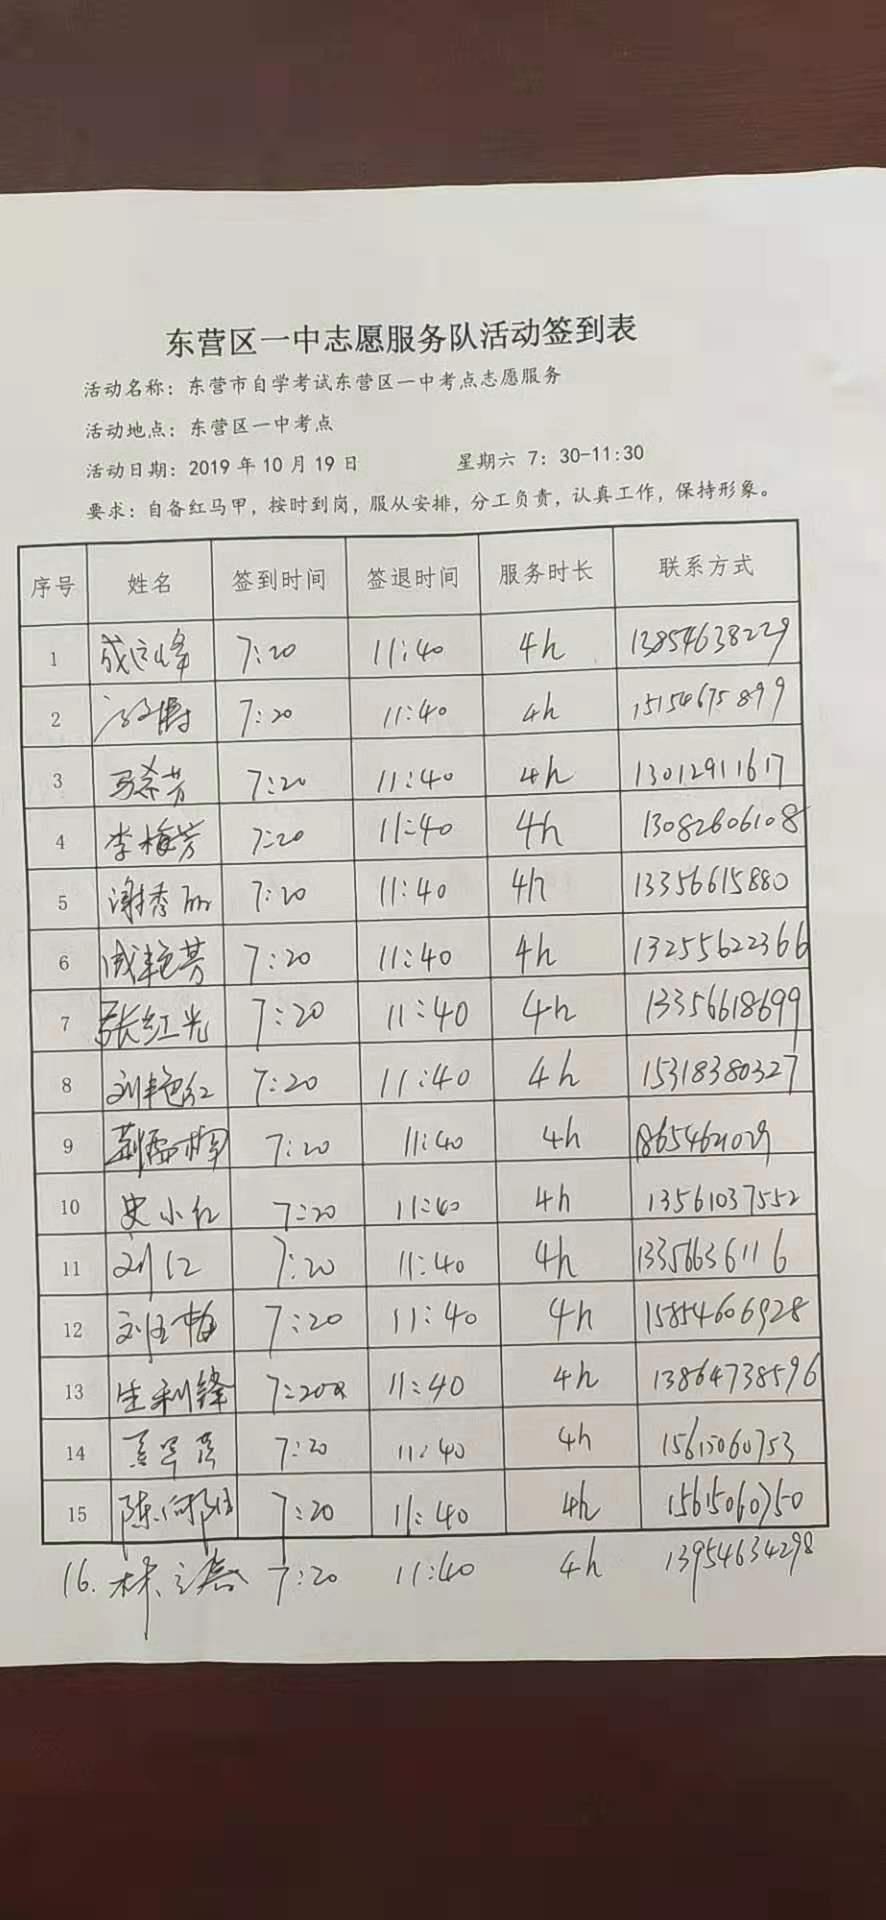 东营区一中志愿服务队活动签到表
活动名称：东营市自学考试东营区一中考点志愿服务
活动地点：东营区一中考点
活动日期：2019 年 10 月 19 日 星期六 7：30-11:30
要求：自备红马甲，按时到岗，服从安排，分工负责，认真工作，保持形象。
序号 姓名 签到时间 签退时间 服务时长 联系方式
1 7:20 11:40 4h 13854638229
2 7:20 11:40 4h 15154675899
3 7:20 11:40 4h 13012911617
4 李梅芳 7:20 11:40 4h 13082606108
5 谢秀丽 7:20 11:40 4h 13356615880
6 成艳芳 7:20 11:40 4h 13255622366
7 张红光 7:20 11:40 4h 13356618699
8 刘艳红 7:20 11:40 4h 15318380327
9 7:20 11:40 4h
10 史小红 7:20 11:40 4h 13561037552
11 刘红 7:20 11:40 4h 13356636116
12 7:20 11:40 4h 15854606928
13 生利锋 7:20 11:40 4h 13864738596
14 7:20 11:40 4h 15615060753
15 7:20 11:40 4h 15615060750
16. 7:20 11:40 4h 13954634298